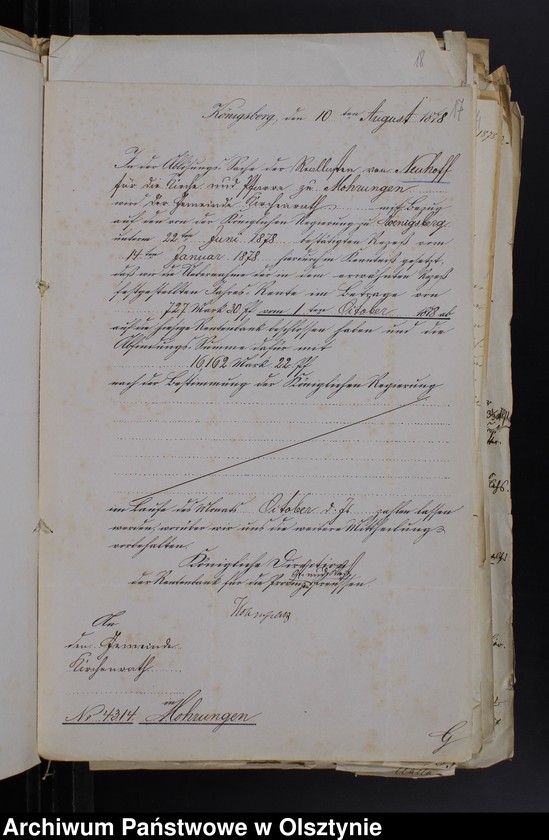 18
17
Königsberg, den 10 ten August 1878
In der Ablösungs-Sache der Reallasten von Neuhoff
für die Kirche und Pfarre zu Mohrungen
wird der Gemeinde Kirchenrath mit Bezug
auf den von der Königlichen Regierung zu Koenigsberg
unterm 22 ten Juni 1878 bestätigten Rezeß vom
14 ten Januar 1878 hierdurch Kenntniß gesetzt,
daß wir die Uebernahme der in dem erwähnten Rezeß
festgestellten Jahres-Rente im Betrage von
727 Mark 30 Pf vom 1 ten October 1878 ab
auf die hiesige Rentenbank beschlossen haben und die
Abfindungs-Summe dafür mit
16,162 Mark 22 Pf
nach der Bestimmung der Königlichen Regierung
im Laufe des Monats October d. Js. zahlen lassen
werden, worüber wir uns die weitere Mittheilung
vorbehalten.
Königliche Direction
der Rentenbank für die Provinzen Ost- und West-Preussen
An
den Gemeinde
Kirchenrath
in
No 4314. Mohrungen
Archiwum Państwowe w Olsztynie